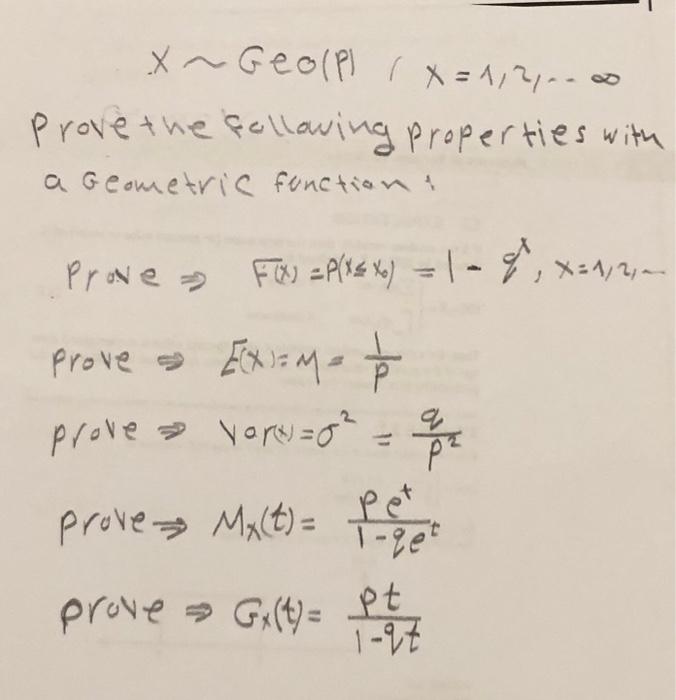 X ~ Geo(P) , X = 1, 2, .. ∞
Prove the following properties with
a Geometric function:
Prove ⇒ F(x) = P(X ≤ x₀) = 1 - q^x, x = 1, 2, ..
prove ⇒ E(X) = M = 1/P
prove ⇒ Var(x) = σ² = q/p²
prove ⇒ Mx(t) = pe^t/1-qe^t
prove ⇒ Gx(t) = pt/1-qt